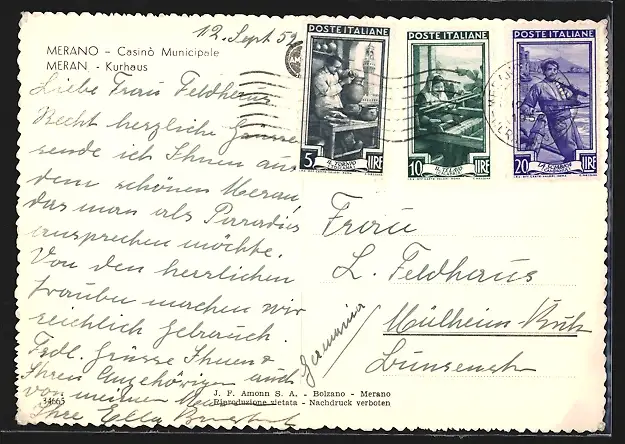 12. Sept 52
MERANO - Casinò Municipale
MERAN - Kurhaus
Liebe Frau Feldhaus
Recht herzliche Grüsse
sende ich Ihnen aus
dem schönen Meran
das man als Paradies
ansprechen möchte.
Von den herrlichen
Trauben machen wir
reichlich Gebrauch.
Frdl. Grüsse Ihnen &
Ihren Angehörigen auch
von meinem
Ihre Ella
34665
J. F. Amonn S. A. - Bolzano - Merano
Riproduzione vietata - Nachdruck verboten
POSTE ITALIANE
5 IL TORNIO LIRE
POSTE ITALIANE
10 IL TELAIO LIRE
POSTE ITALIANE
20 LIRE
Frau
L. Feldhaus
Mülheim Ruhr
Germania